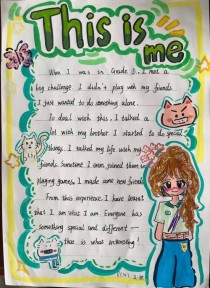 This is
me
When I was in Grade 8, I met a
big challenge. I didn't play with my friends
I just wanted to do something alone.
To deal wish this, I talked a
lot wish my brother. I started to do special
things. I talked my life wish my
friends. Sometime I even joined them
playing games, I made some new friends
From this experience, I have learnt
that I am what I am. Everyone has
something special and different —
that is what interesting!